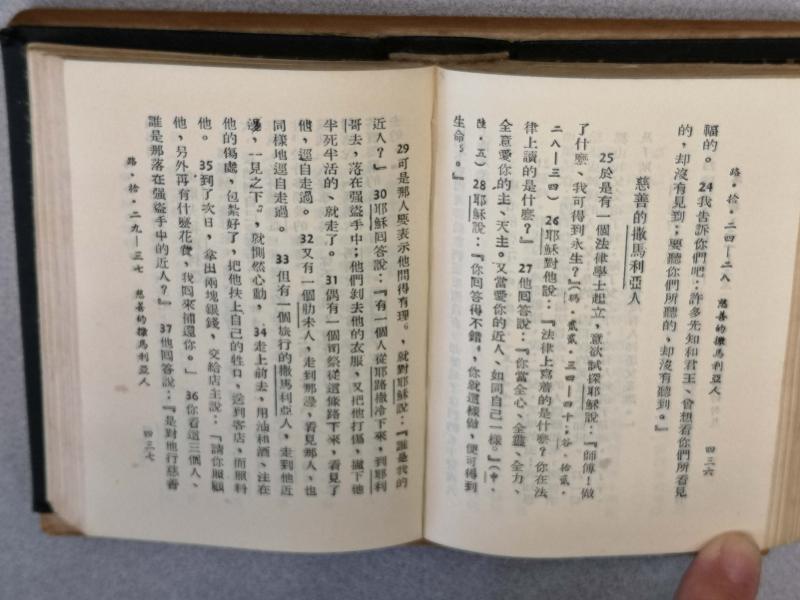 路・拾・二四—二八　慈善的撒馬利亞人　四三六
福的。24我告訴你們吧：許多先知和君王、曾想看你們所看見
的，却沒有見到；要聽你們所聽的，却沒有聽到。』
慈善的撒馬利亞人
25於是有一個法律學士起立，意欲試探耶穌說：『師傅！做
了什麼、我可得到永生？』（瑪・貳貳・三四—四十；谷・拾貳・
二八—三四）26耶穌對他說：『法律上寫着的是什麼？你在法
律上讀的是什麼？』27他回答說：『你當全心、全靈、全力、
全意愛你的主、天主。又當愛你的近人、如同自己一樣。』（申・
陸・五）28耶穌說：『你回答得不錯。你就這樣做，便可得到
生命。』
29可是那人要表示他問得有理。就對耶穌說：『誰是我的
近人？』30耶穌回答說：『有一個人從耶路撒冷下來，到耶利
哥去，落在强盜手中；他們剝去他的衣服，又把他打傷，撇下他
半死半活的、就走了。31偶有一個司祭從這條路下來，看見了
他，逕自走過。32又有一個肋未人，走到那邊，看見那人、也
同樣地逕自走過。33但有一個旅行的撒馬利亞人，走到他近
邊，一見之下，就惻然心動，34走上前去，用油和酒、注在
他的傷處，包紮好了，把他扶上自己的牲口，送到客店，而照料
他。35到了次日，拿出兩塊銀錢，交給店主說：『請你照顧
他，另外再有什麼花費，我回來補還你。』36你看這三個人、
誰是那落在强盜手中的近人？』37他回答說：『是對他行慈善
路・拾・二九—三七　慈善的撒馬利亞人　四三七